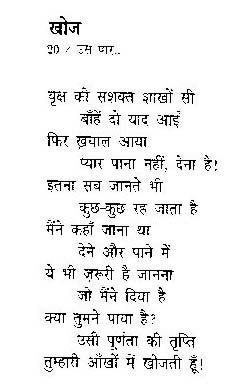 खोज
20 / उस पार..
वृक्ष की सशक्त शाखों सी
बाँहें दो याद आई
फिर ख़याल आया
प्यार पाना नहीं, देना है!
इतना सब जानते भी
कुछ-कुछ रह जाता है
मैंने कहाँ जाना था
देने और पाने में
ये भी ज़रूरी है जानना
जो मैंने दिया है
क्या तुमने पाया है?
उसी पूर्णता की तृप्ति
तुम्हारी आँखों में खोजती हूँ!